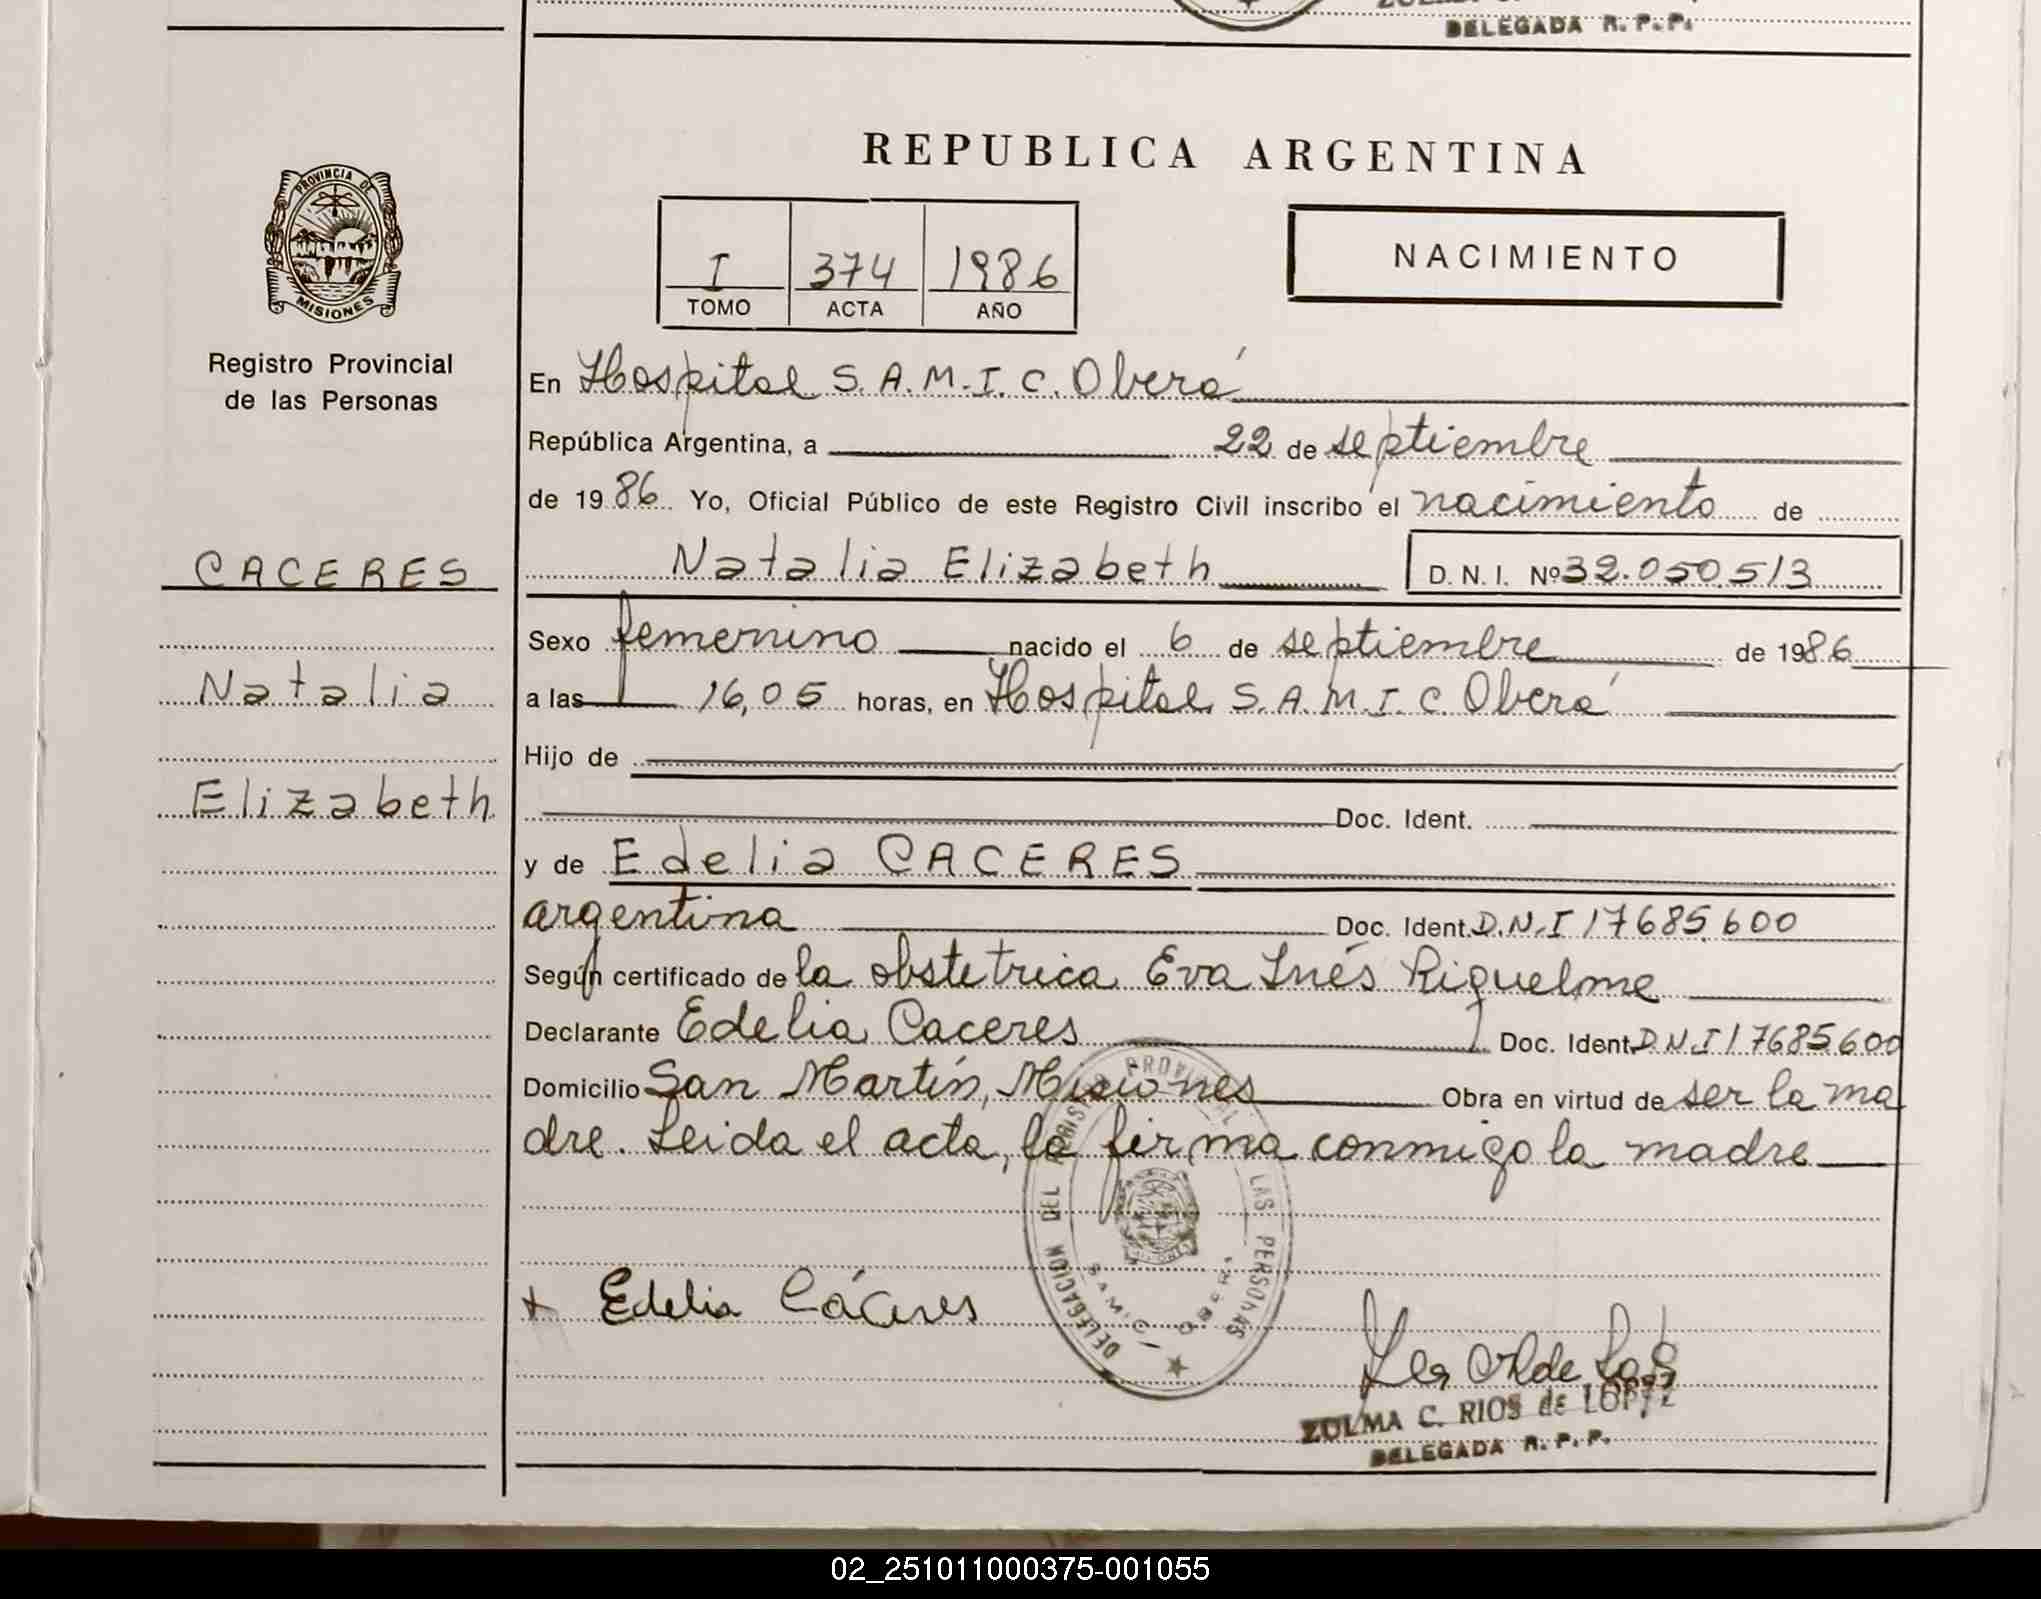 DELEGADA R. P. P.
REPUBLICA ARGENTINA
PROVINCIA DE
MISIONES
I 374 1986
TOMO ACTA AÑO
NACIMIENTO
Registro Provincial
de las Personas
En Hospital S.A.M.I.C. Oberá
República Argentina, a 22 de septiembre
de 1986. Yo, Oficial Público de este Registro Civil inscribo el nacimiento de
CACERES
Natalia Elizabeth D. N. I. Nº 32.050.513
Sexo femenino nacido el 6 de septiembre de 1986
Natalia
a las 16,05 horas, en Hospital S.A.M.I.C. Oberá
Hijo de
Elizabeth
Doc. Ident.
y de Edelia CACERES
argentina Doc. Ident. D.N.I 17685.600
Según certificado de la obstetrica Eva Inés Riquelme
Declarante Edelia Caceres Doc. Ident. D N I 17685600
Domicilio San Martín, Misiones Obra en virtud de ser la ma
dre. Leida el acta, la firma conmigo la madre
DELEGACION DEL REGISTRO PROVINCIAL DE LAS PERSONAS
SAMIC OBERA
+ Edelia Cáceres
ZULMA C. RIOS de LOPEZ
DELEGADA R. P. P.
02_251011000375-001055